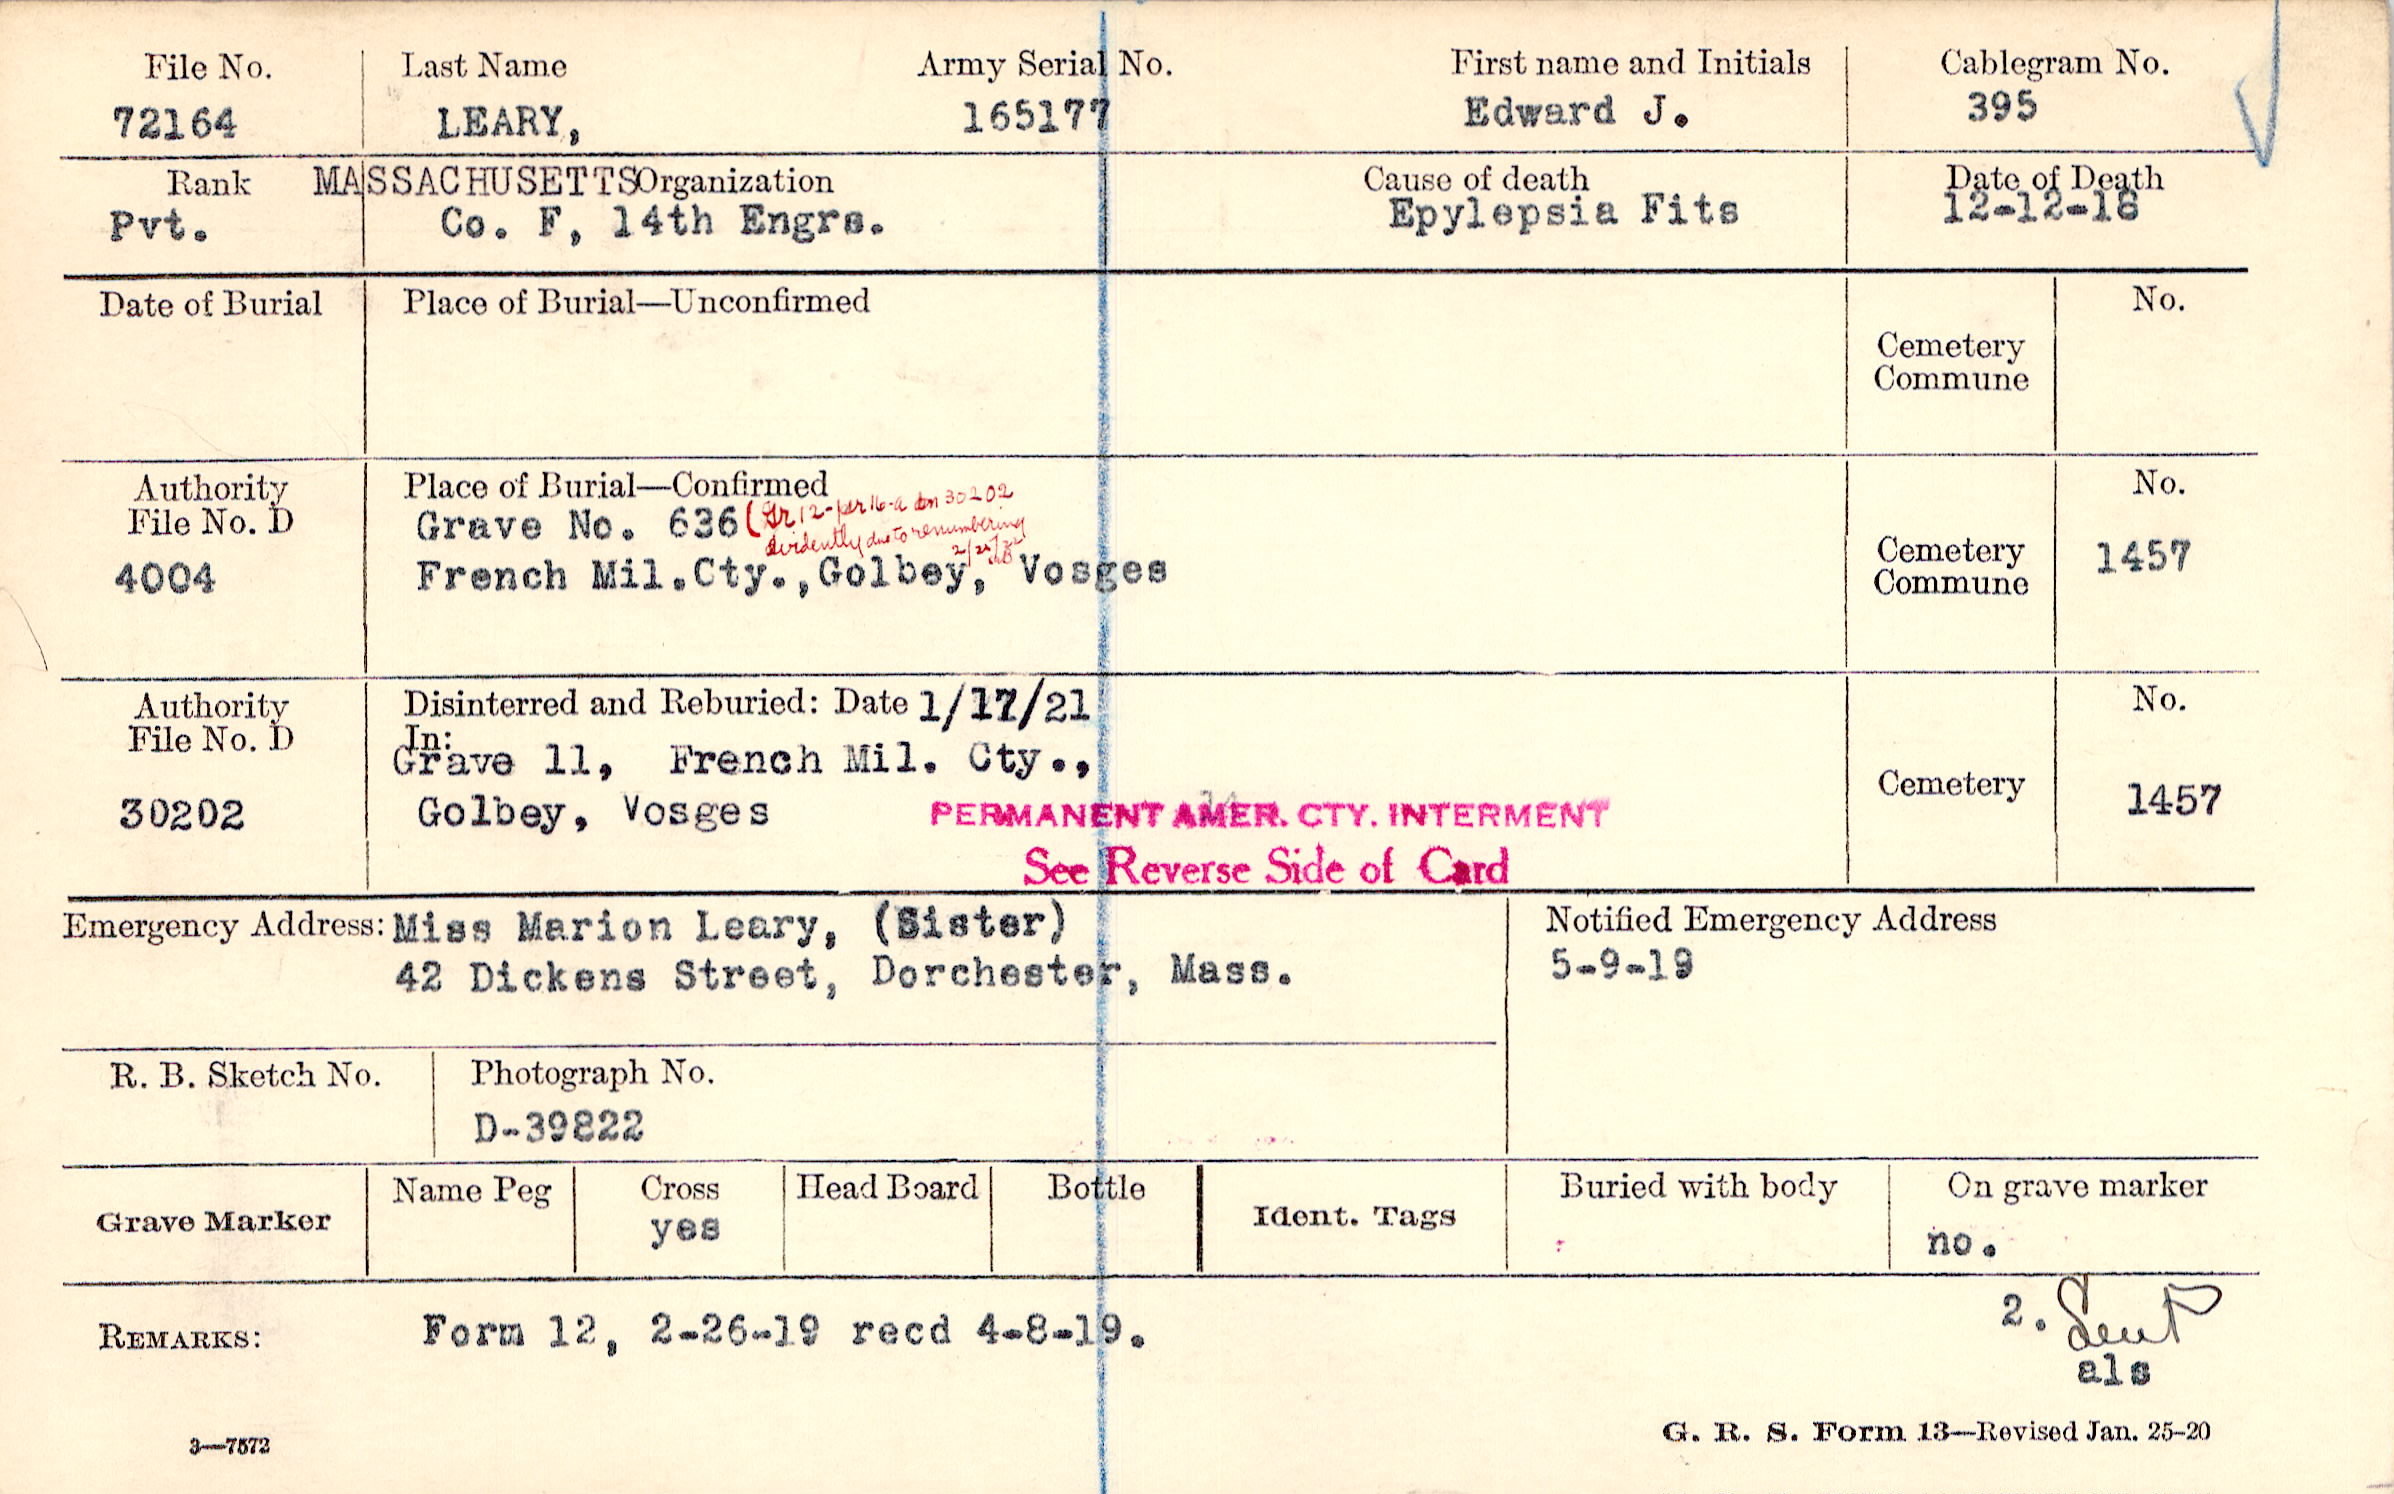 File No. Last Name Army Serial No. First name and Initials Cablegram No.
72164 LEARY, 165177 Edward J. 395
Rank MASSACHUSETTS Organization Cause of death Date of Death
Pvt. Co. F, 14th Engrs. Epylepsia Fits 12-12-18
Date of Burial Place of Burial—Unconfirmed No.
Cemetery
Commune
Authority Place of Burial—Confirmed No.
File No. D Grave No. 636 (Gr 12-per 16-a on 30202
evidently due to renumbering
4004 French Mil.Cty.,Golbey, Vosges Cemetery 1457
Commune
Authority Disinterred and Reburied: Date 1/17/21 No.
File No. D In:
Grave 11, French Mil. Cty.,
Cemetery
30202 Golbey, Vosges PERMANENT AMER. CTY. INTERMENT 1457
See Reverse Side of Card
Emergency Address: Miss Marion Leary, (Sister) Notified Emergency Address
42 Dickens Street, Dorchester, Mass. 5-9-19
R. B. Sketch No. Photograph No.
D-39822
Grave Marker Name Peg Cross Head Board Bottle Ident. Tags Buried with body On grave marker
yes no.
REMARKS: Form 12, 2-26-19 recd 4-8-19. 2. Sent
als
3—7572 G. R. S. Form 13—Revised Jan. 25-20